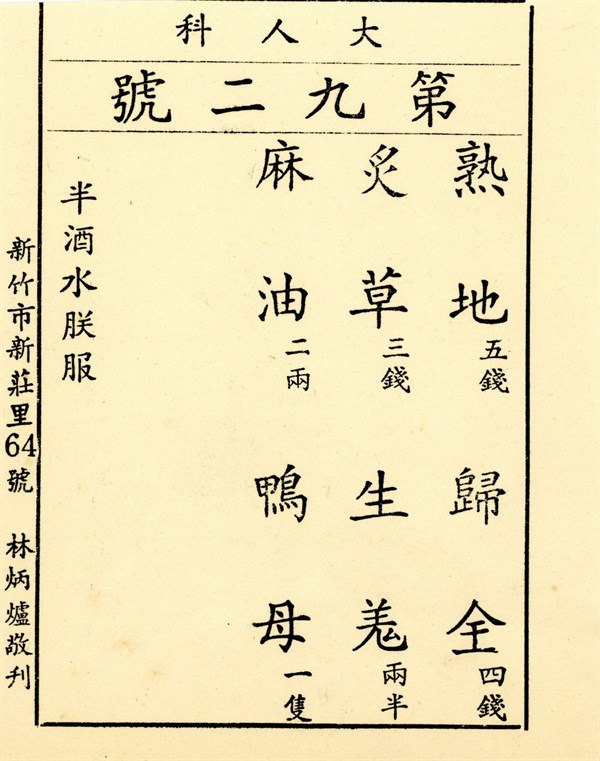 大人科
第九二號
熟地五錢 歸全四錢
炙草三錢 生羗兩半
麻油二兩 鴨母一隻
半酒水朕服
新竹市新莊里64號 林炳爐敬刋